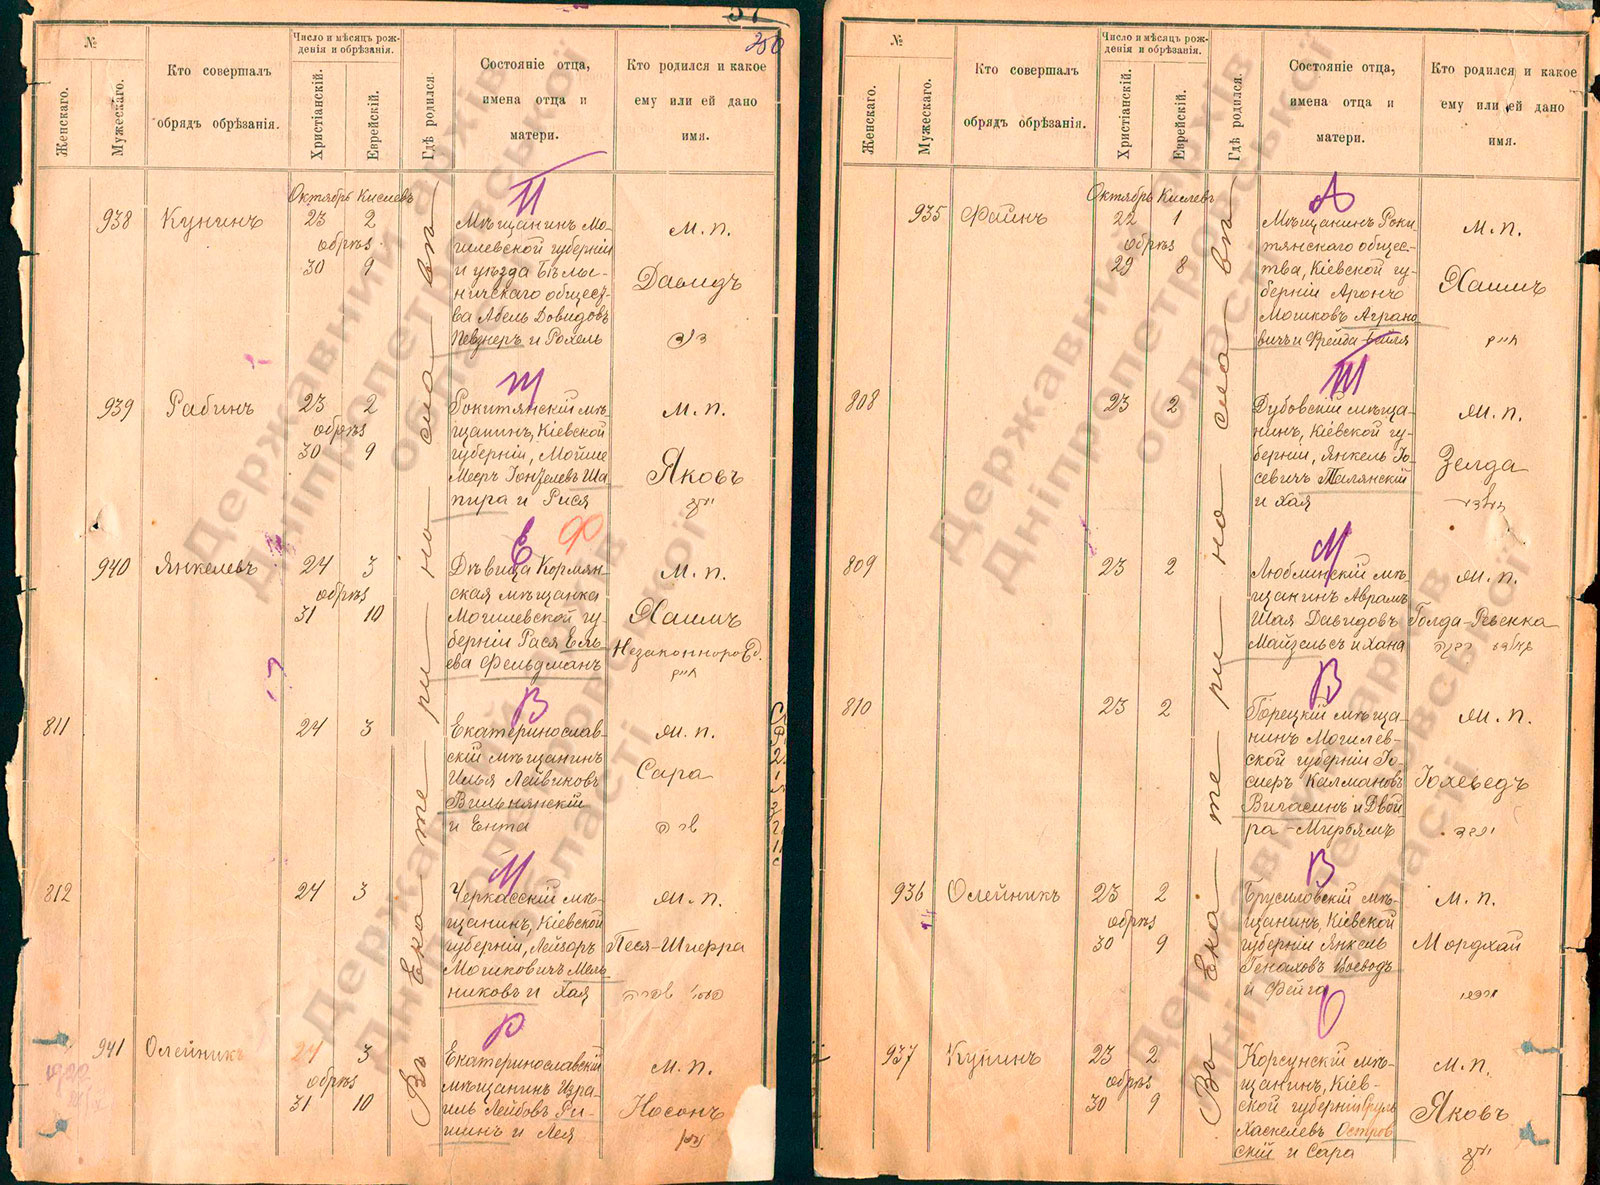 57
200
№
Женскаго.
Мужескаго.
Кто совершалъ
обрядъ обрѣзанія.
Число и мѣсяцъ рож-
денія и обрѣзанія.
Христіанскій.
Еврейскій.
Гдѣ родился.
Состояніе отца,
имена отца и
матери.
Кто родился и какое
ему или ей дано
имя.
Въ Екатеринославѣ
938
Кунинъ
Октябрь Кислевъ
23 2
обрѣз
30 9
Мѣщанинъ Мо-
гилевской губерніи
и уѣзда Бѣлы-
ничскаго общест-
ва Абель Довидовъ
Певзнеръ и Рохель
М. п.
Давидъ
דוד
939
Рабинъ
23 2
обрѣз
30 9
Рокитянскій мѣ-
щанинъ, Кіевской
губерніи, Мойше
Мееръ Іонзелевъ Ша
пира и Рися
М. п.
Яковъ
יעקב
940
Янкелевъ
24 3
обрѣз
31 10
Дѣвица Кормян-
ская мѣщанка
Могилевской гу-
берніи Рася Ель
ева Фельдманъ
М. п.
Хаимъ
Незаконнорожд.
חיים
811
24 3
Екатеринослав-
скій мѣщанинъ
Илья Лейвиковъ
Вильнянскій
и Ента
Ж. п.
Сара
שרה
812
24 3
Черкасскій мѣ-
щанинъ, Кіевской
губерніи, Лейзоръ
Мошковичъ Мель
никовъ и Хая
Ж. п.
Песя-Шифра
פעסי שפרה
941
Олейникъ
24 3
обрѣз
31 10
Екатеринославскій
мѣщанинъ Изра-
иль Лейбовъ Ри-
шинъ и Лея
М. п.
Носонъ
נתן
№
Женскаго.
Мужескаго.
Кто совершалъ
обрядъ обрѣзанія.
Число и мѣсяцъ рож-
денія и обрѣзанія.
Христіанскій.
Еврейскій.
Гдѣ родился.
Состояніе отца,
имена отца и
матери.
Кто родился и какое
ему или ей дано
имя.
Въ Екатеринославѣ
935
Файнъ
Октябрь Кислевъ
22 1
обрѣз
29 8
Мѣщанинъ Роки
тянскаго общес-
тва, Кіевской гу-
берніи Аронъ
Мошковъ Аграно
вичъ и Фрейда Бейля
М. п.
Хаимъ
חיים
808
23 2
Дубовскій мѣща-
нинъ, Кіевской гу-
берніи, Янкель Іо-
севичъ Талянскій
и Хая
Ж. п.
Зелда
809
23 2
Люблинскій мѣ-
щанинъ Аврамъ
Шая Давидовъ
Майзельсъ и Хана
Ж. п.
Голда-Ревекка
810
23 2
Горецкій мѣща-
нинъ Могилев-
ской губерніи Іо-
сифъ Калмановъ
Вигасинъ и Двой
ра-Мирьямъ
Ж. п.
Іохеведъ
936
Олейникъ
23 2
обрѣз
30 9
Брусиловскій мѣ-
щанинъ, Кіевской
губерніи Янкель
Генаховъ Воеводъ
и Фейга
М. п.
Мордхай
מרדכי
937
Кунинъ
23 2
обрѣз
30 9
Корсунскій мѣ-
щанинъ, Кіев-
ской губерніи Сруль
Хаскелевъ Остров
скій и Сара
М. п.
Яковъ
יעקב
Державний архів
Дніпропетровської
області